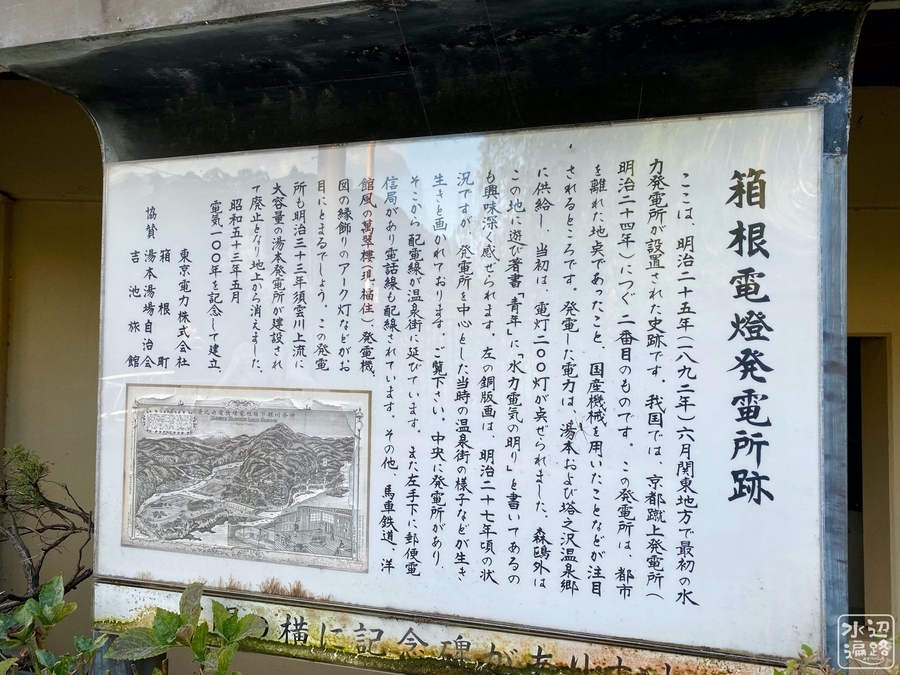 箱根電燈発電所跡
ここは、明治二十五年(一八九二年)六月関東地方で最初の水
力発電所が設置された史跡です。我国では、京都蹴上発電所(
明治二十四年)につぐ二番目のものです。この発電所は、都市
を離れた地点であったこと、国産機械を用いたことなどが注目
されるところです。発電した電力は、湯本および塔之沢温泉郷
に供給し、当初は、電灯二〇〇灯が点ぜられました、森鴎外は
この地に遊び著書「青年」に「水力電気の明り」と書いてあるの
も興味深く感ぜられます。左の銅版画は、明治二十七年頃の状
況ですが、発電所を中心とした当時の温泉街の様子などが生き
生きと画かれております。ご覧下さい。中央に発電所があり、
そこから配電線が温泉街に延びています。また左手下に郵便電
信局があり電話線も配線されています。その他、馬車鉄道、洋
館風の萬翠樓(現福住)、発電機、
図の縁飾りのアーク灯などがお
目にとまるでしょう。この発電
所も明治三十三年須雲川上流に
大容量の湯本発電所が建設され
て廃止となり地上から消えました。
昭和五十三年五月
電気一〇〇年を記念して建立
東京電力株式会社
箱根町
協賛 湯本湯場自治会
吉池旅館
の横に記念碑があります
水辺遍路